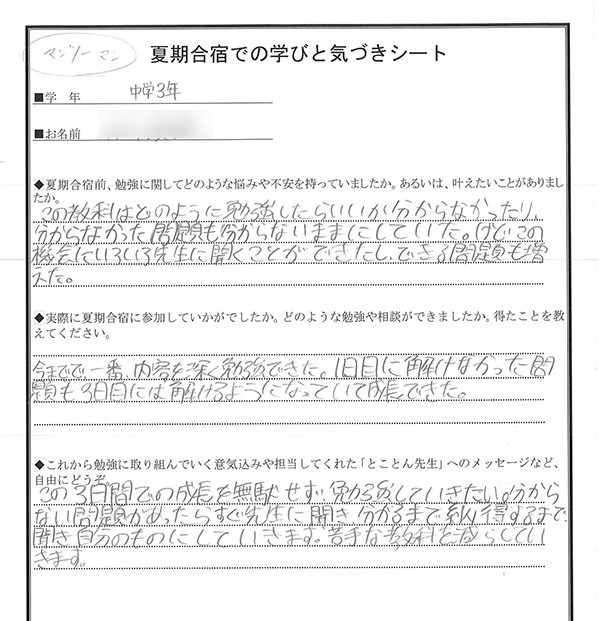 マンツーマン
夏期合宿での学びと気づきシート
■学 年 中学3年
■お名前
◆夏期合宿前、勉強に関してどのような悩みや不安を持っていましたか。あるいは、叶えたいことがありまし
たか。
この教科はどのように勉強したらいいか分からなかったり、
分からなかった問題も分からないままにしていた。けど、この
機会にいろいろ先生に聞くことができたし、できる問題も増
えた。
◆実際に夏期合宿に参加していかがでしたか。どのような勉強や相談ができましたか。得たことを教
えてください。
今までで一番、内容を深く勉強できた。1日目に解けなかった問
題も3日目には解けるようになっていて成長できた。
◆これから勉強に取り組んでいく意気込みや担当してくれた「とことん先生」へのメッセージなど、
自由にどうぞ。
この3日間での成長を無駄せず、勉強していきたい。分から
ない問題があったらすぐ先生に聞き分かるまで納得するまで、
聞き自分のものにしていきます。苦手な教科を減らしてい
きます。